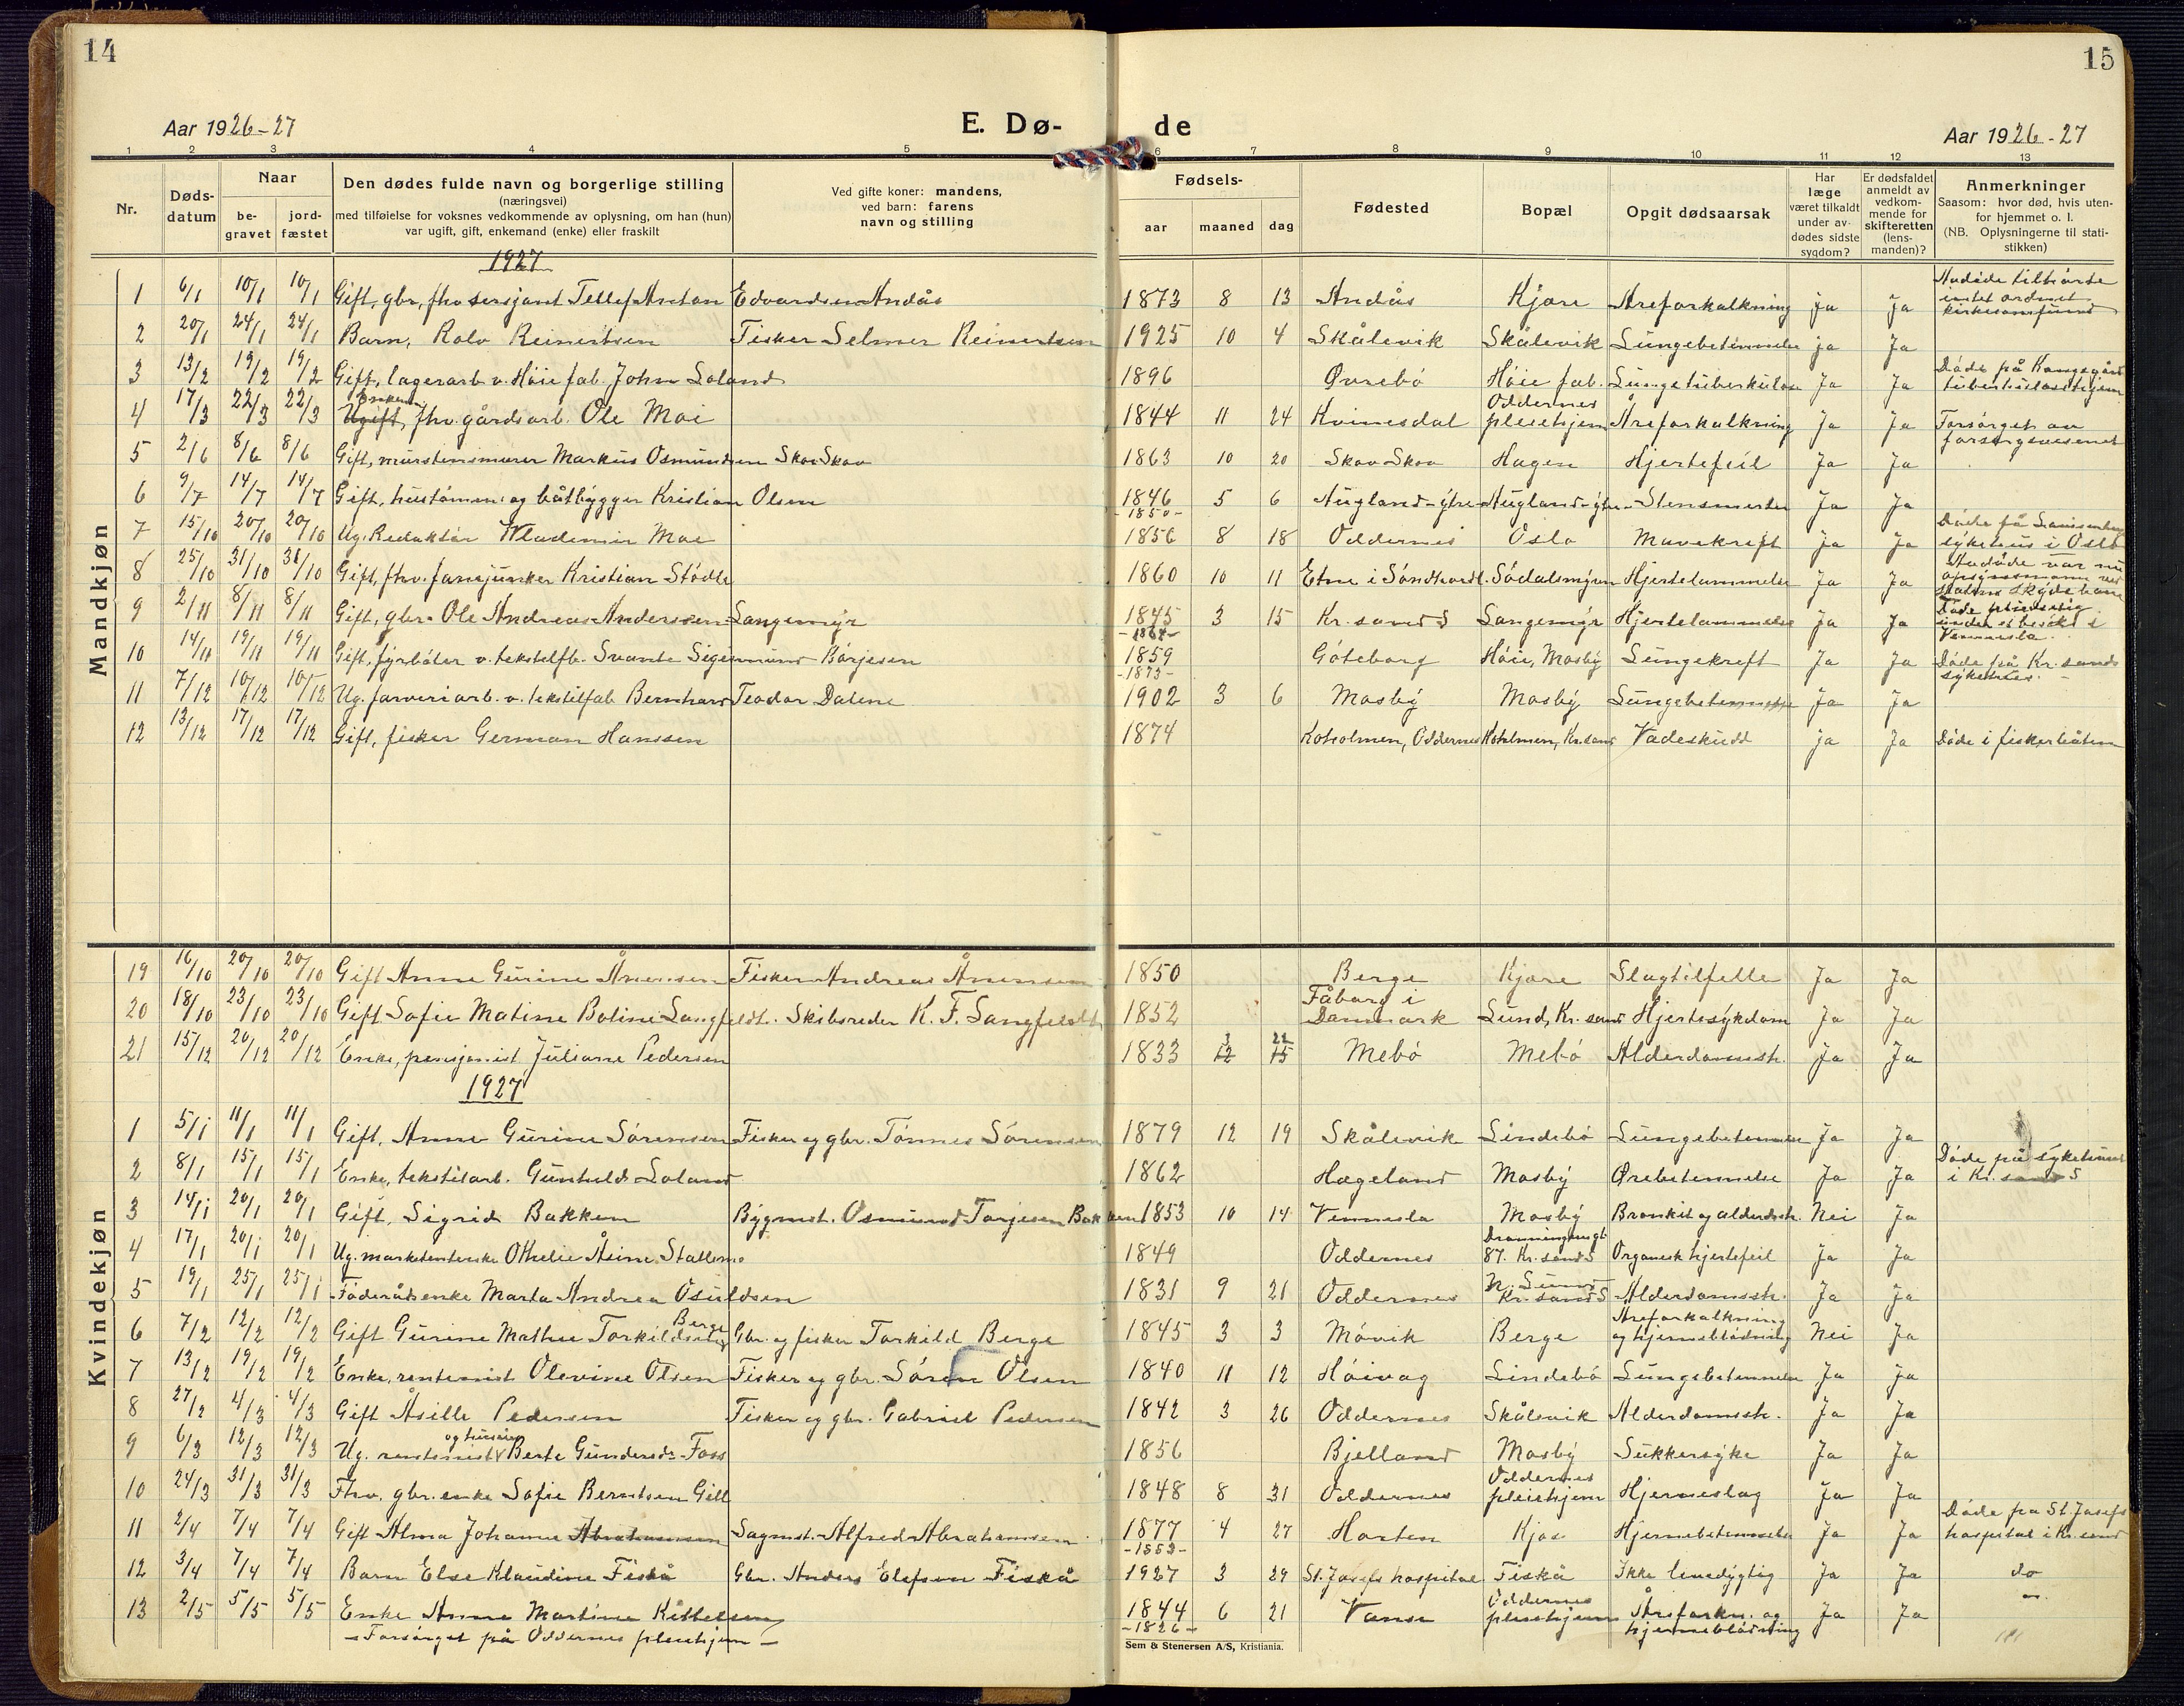 14
15
Aar 1926-27
E. Dø- de
Aar 1926-27
1 2 3 4 5 6 7 8 9 10 11 12 13
Nr.
Døds-
datum
Naar
be-
gravet
jord-
fæstet
Den dødes fulde navn og borgerlige stilling
(næringsvei)
med tilføielse for voksnes vedkommende av oplysning, om han (hun)
var ugift, gift, enkemand (enke) eller fraskilt
Ved gifte koner: mandens,
ved barn: farens
navn og stilling
Fødsels-
aar maaned dag
Fødested
Bopæl
Opgit dødsaarsak
Har
læge
været tilkaldt
under av-
dødes sidste
sygdom?
Er dødsfaldet
anmeldt av
vedkom-
mende for
skifteretten
(lens-
manden)?
Anmerkninger
Saasom: hvor død, hvis uten-
for hjemmet o. l.
(NB. Oplysningerne til stati-
stikken)
Mandkjøn
1927
1 6/1 10/1 10/1 Gift, gbr, fhv sersjant Tellef Anton Edvardsen Andås 1873 8 13 Andås Kjøre Åreforkalkning Ja Ja Avdøde tilhørte intet ordnet kirkesamfund
2 20/1 24/1 24/1 Barn, Rolv Reinertsen Fisker Selmer Reinertsen 1925 10 4 Skålevik Skålevik Lungebetennelse ja Ja
3 13/2 19/2 19/2 Gift, lagerarb. v. Høie fab. John Loland 1896 Øvrebø Høie fab. Lungetuberkulose Ja Ja Døde på Kongsgård tuberkulosehjem
4 17/3 22/3 22/3 Ugift, fhv. gårdsarb. Ole Moi 1844 11 24 Kvinesdal Oddernes pleiehjem Åreforkalkning Ja Ja Forsørget av forsorgsvesenet
5 2/6 8/6 8/6 Gift, murstensmurer Markus Osmundsen Skov Skov 1863 10 20 Skov Skov Hagen Hjertefeil Ja Ja
6 9/7 14/7 14/7 Gift, hustømm. og båtbygger Kristian Olsen 1846 5 6 Augland-ytre Augland-ytre Stensmerter Ja Ja
-1850-
7 15/10 20/10 20/10 Ug. Redaktør Wladimir Moe 1856 8 18 Oddernes Oslo Mavekreft Ja Ja sykehus i Oslo
8 25/10 31/10 31/10 Gift, fhv. fanejunker Kristian Stødle 1860 10 11 Etne i Søndhordl. Sødalsmyren Hjertelammelse Ja Ja Avdøde var nu opsynsmann ved statens skytebane
9 2/11 8/11 8/11 Gift, gbr. Ole Andreas Anderssen Langemyr 1845 3 15 Kr.sand S Langemyr Hjertelammelse ja Ja Døde pludselig under et besøk i Vennesla.
10 14/11 19/11 19/11 Gift, fyrbøter v. tekstilfb. Svante Sigismund Børjesen 1859 Göteborg Høie, Mosby Lungekreft Ja Ja Døde på Kr.sands sykehus.
-1873-
11 7/12 10/12 10/12 Ug. farveriarb. v. tekstilfab Bernhard Teodor Dalene 1902 3 6 Mosby Mosby Lungebetennelse Ja Ja
12 13/12 17/12 17/12 Gift, fisker German Hanssen 1874 Koholmen, Oddernes Koholmen, Kr.sand Vådeskudd ja Ja Døde i fiskerbåten
Kvindekjøn
19 16/10 20/10 20/10 Gift Anne Gurine Ånensen Fisker Andreas Ånensen 1850 Berge Kjøre Slagtilfelle Ja Ja
20 18/10 23/10 23/10 Gift Sofie Matine Boline Langfeldt. Skibsreder K. F. Langfeldt 1852 Fåborg i Danmark Lund, Kr.sand Hjertesykdom Ja Ja
21 15/12 20/12 20/12 Enke, pensjonist Juliane Pedersen 1833 3 12 22 15 Mebø Mebø Alderdomssh. Ja Ja
1927
1 5/1 11/1 11/1 Gift, Anne Gurine Sørensen Fisker og gbr. Tønnes Sørensen 1879 12 19 Skålevik Lindebø Lungebetennelse Ja Ja
2 8/1 15/1 15/1 Enke, tekstilarb. Gunhild Loland 1862 Hægeland Mosby Ørebetennelse Ja Ja Døde på sykehuset i Kr.sand S
3 14/1 20/1 20/1 Gift, Sigrid Bakken Bygmst. Osmund Torjesen Bakken 1853 10 14 Vennesla Mosby Bronkit og alderdssh. Nei Ja
4 17/1 20/1 20/1 Ug. marketenterske Othelie Åsine Stallemo 1849 Oddernes Dronningensgt 87. Kr.sand S Organisk hjertefeil Ja Ja
5 19/1 25/1 25/1 Føderådsenke Marta Andrea Osuldsen 1831 9 21 Oddernes N. Lund Kr.sand S Alderdomssh. Ja Ja
6 7/2 12/2 12/2 Gift Gurine Mathie Torkildsen Berge Gbr. og fisker Torkild Berge 1845 3 3 Møvik Berge Åreforkalkning og hjerneblødning Nei Ja
7 13/2 19/2 19/2 Enke, rentenist Olevine Olsen Fisker og gbr. Søren Olsen 1840 11 12 Høivåg Lindebø Lungebetennelse Ja Ja
8 27/2 4/3 4/3 Gift Åsille Pedersen Fisker og gbr. Gabriel Pedersen 1842 3 26 Oddernes Skålevik Alderdomssh. Ja Ja
9 6/3 12/3 12/3 Ug. rentenist Berte Gundersd. Foss 1856 Bjelland Mosby Sukkersyke Ja Ja
10 24/3 31/3 31/3 Fhv. gbr. enke Sofie Berntsen Gill 1848 8 31 Oddernes Oddernes pleiehjem Hjerneslag Ja Ja
11 2/4 7/4 7/4 Gift Alma Johanne Abrahamsen Sagmst. Alfred Abrahamsen 1877 4 27 Horten Kjos Hjernebetennelse Ja Ja Døde på St. Josefs hospital i Kr.sand
-1853-
12 3/4 7/4 7/4 Barn Else Klaudine Fiskå Gbr. Anders Elefsen Fiskå 1927 3 29 St. Josefs hospital Fiskå Ikke levedygtig Ja Ja do
13 2/5 5/5 5/5 Enke Anne Martine Kittelsen 1844 6 21 Vanse Oddernes pleiehjem Åreforkn. og hjerneblødning Ja Ja
- Forsørget på Oddernes pleiehjem - -1826-
Sem & Stenersen A/S, Kristiania.